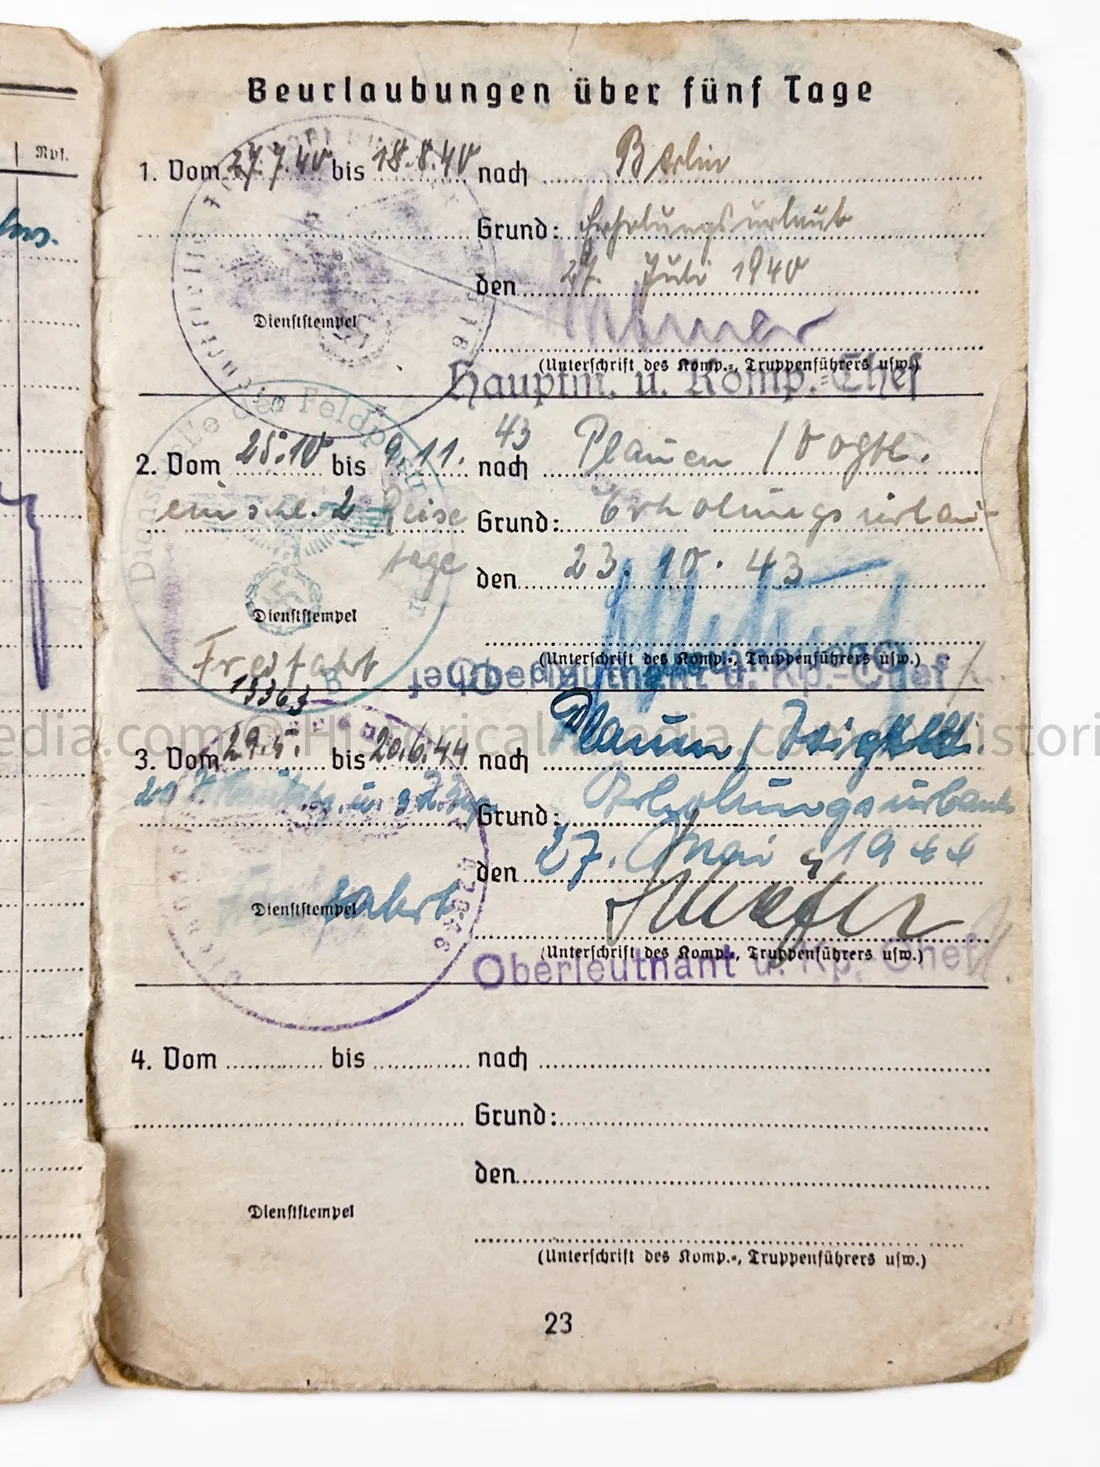 Rpf.
Beurlaubungen über fünf Tage
1. Vom 27.7.40 bis 18.8.40 nach Berlin
Grund: Erholungsurlaub
den 27. Juli 1940
Dienststempel
(Unterschrift des Komp.-, Truppenführers usw.)
Hauptm. u. Komp.-Chef
Dienststelle der Feldpost
2. Vom 25.10 bis 9.11. 43 nach Plauen / Vogtl.
einschl. 2 Reise Grund: Erholungsurlau-
tage
den 23. 10. 43
Dienststempel
(Unterschrift des Komp.-, Truppenführers usw.)
Freifahrt
Oberleutnant u. Kp.-Chef
15363 B
edia.com © Historicalmedia.com © Histori
3. Vom 29.5. bis 20.6.44 nach Plauen /
Grund: Erholungsurlaub
den 27. Mai 1944
Dienststempel
(Unterschrift des Komp.-, Truppenführers usw.)
Oberleutnant u. Kp. Chef
4. Vom bis nach
Grund:
den
Dienststempel
(Unterschrift des Komp.-, Truppenführers usw.)
23